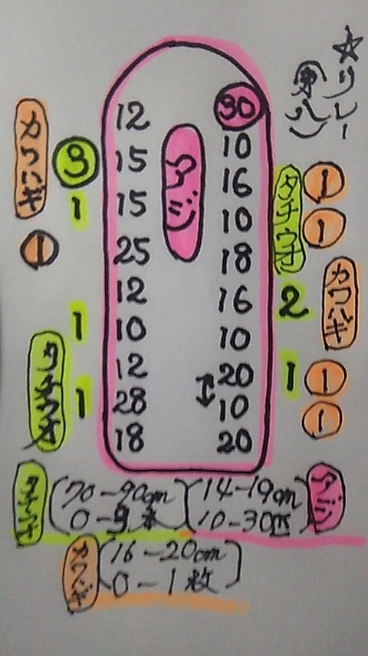 ☆リレー
(第八)
アジ
カワハギ
3
1
1
1
1
タチウオ
12
15
15
25
12
10
12
28
18
30
10
16
10
18
16
10
20
10
20
タチウオ
2
1
1
1
カワハギ
1
1
タチウオ (70-90cm 0-3本)
(14-19cm 10-30匹) アジ
カワハギ (16-20cm 0-1枚)